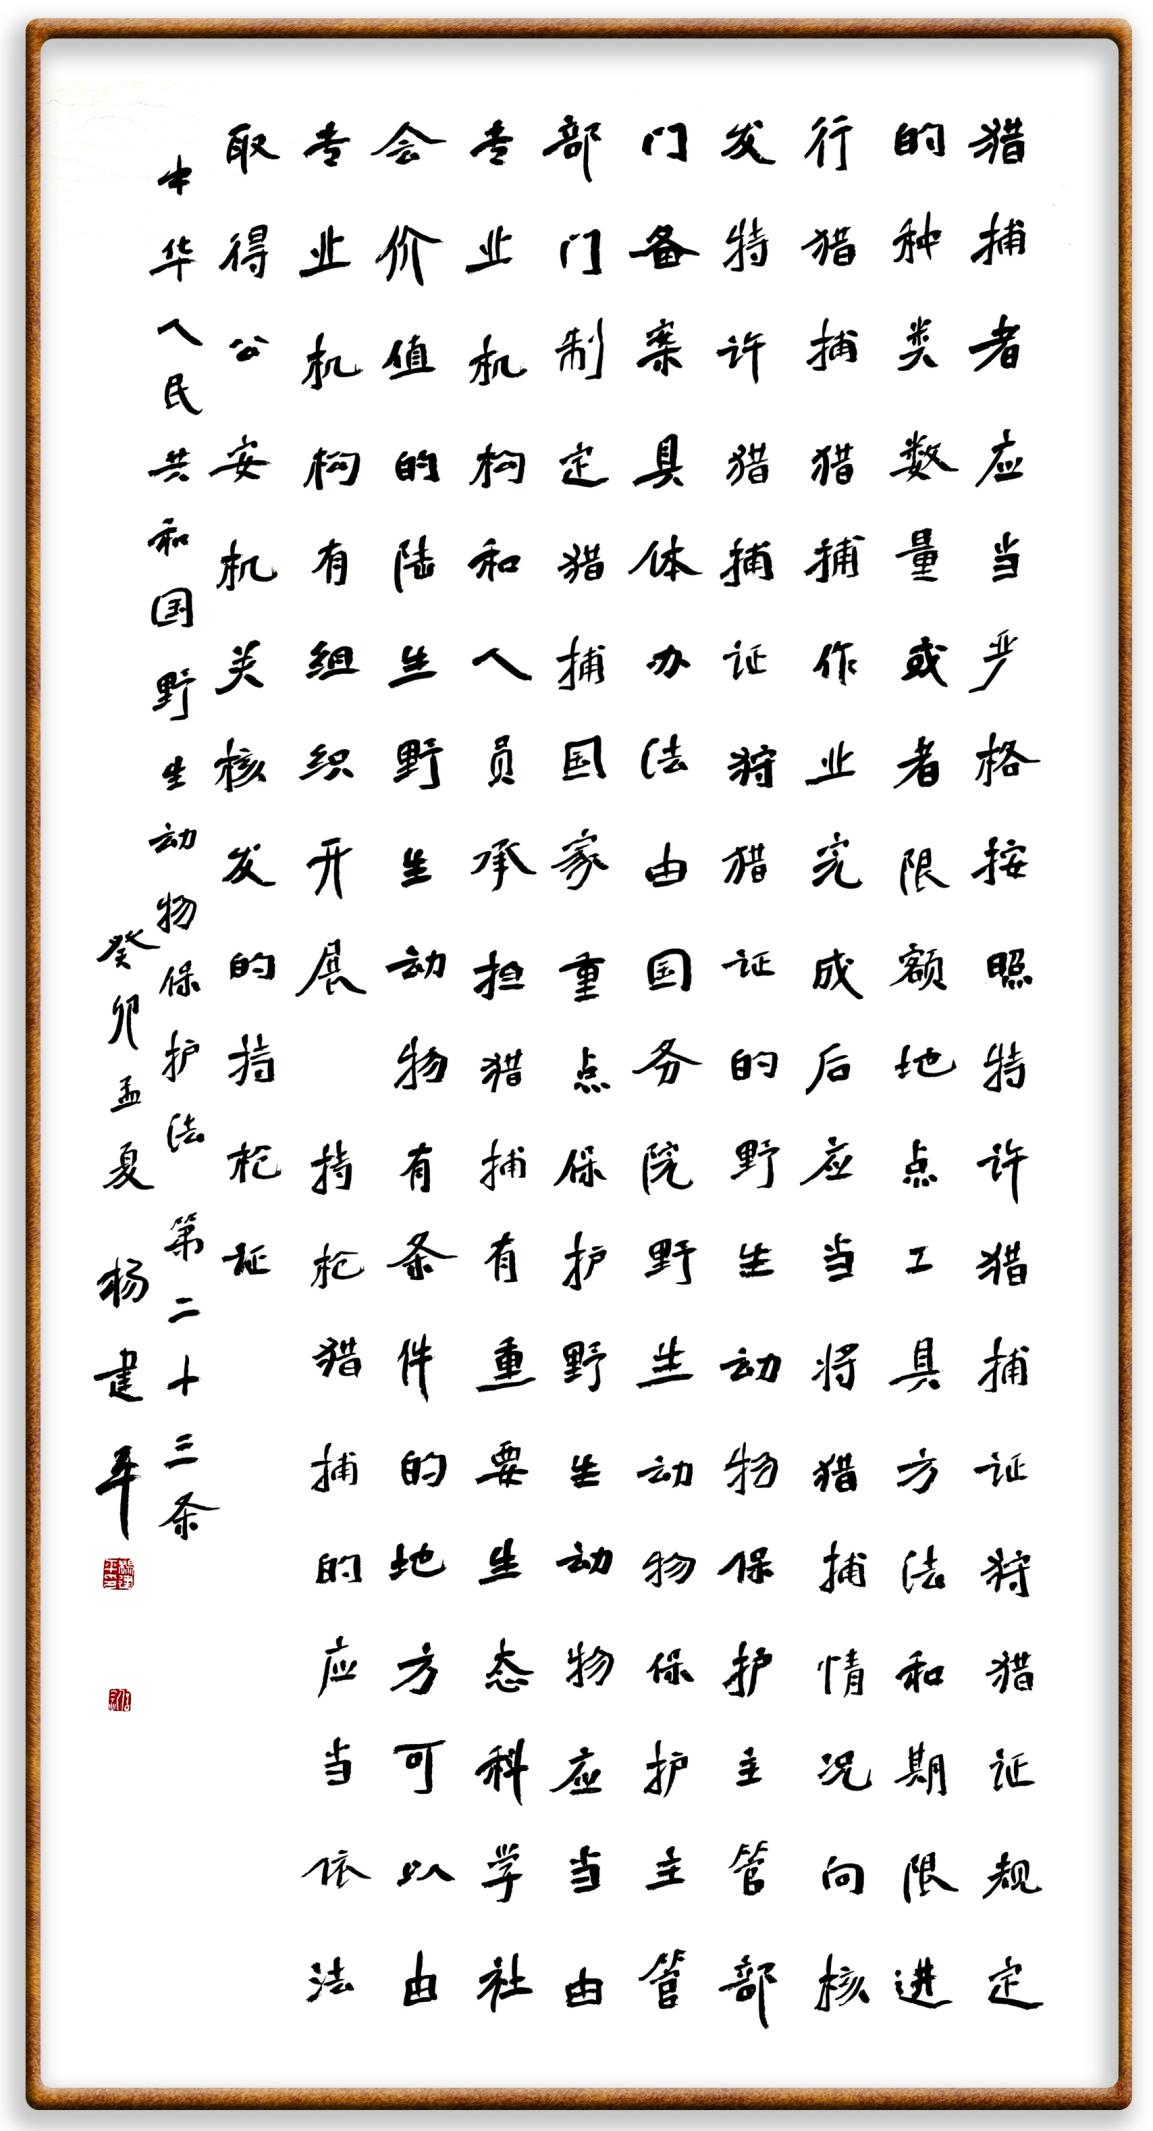 猎捕者应当严格按照特许猎捕证狩猎证规定
的种类数量或者限额地点工具方法和期限进
行猎捕猎捕作业完成后应当将猎捕情况向核
发特许猎捕证狩猎证的野生动物保护主管部
门备案具体办法由国务院野生动物保护主管
部门制定猎捕国家重点保护野生动物应当由
专业机构和人员承担猎捕有重要生态科学社
会价值的陆生野生动物有条件的地方可以由
专业机构有组织开展 持枪猎捕的应当依法
取得公安机关核发的持枪证
中华人民共和国野生动物保护法 第二十三条
癸卯孟夏 杨建平